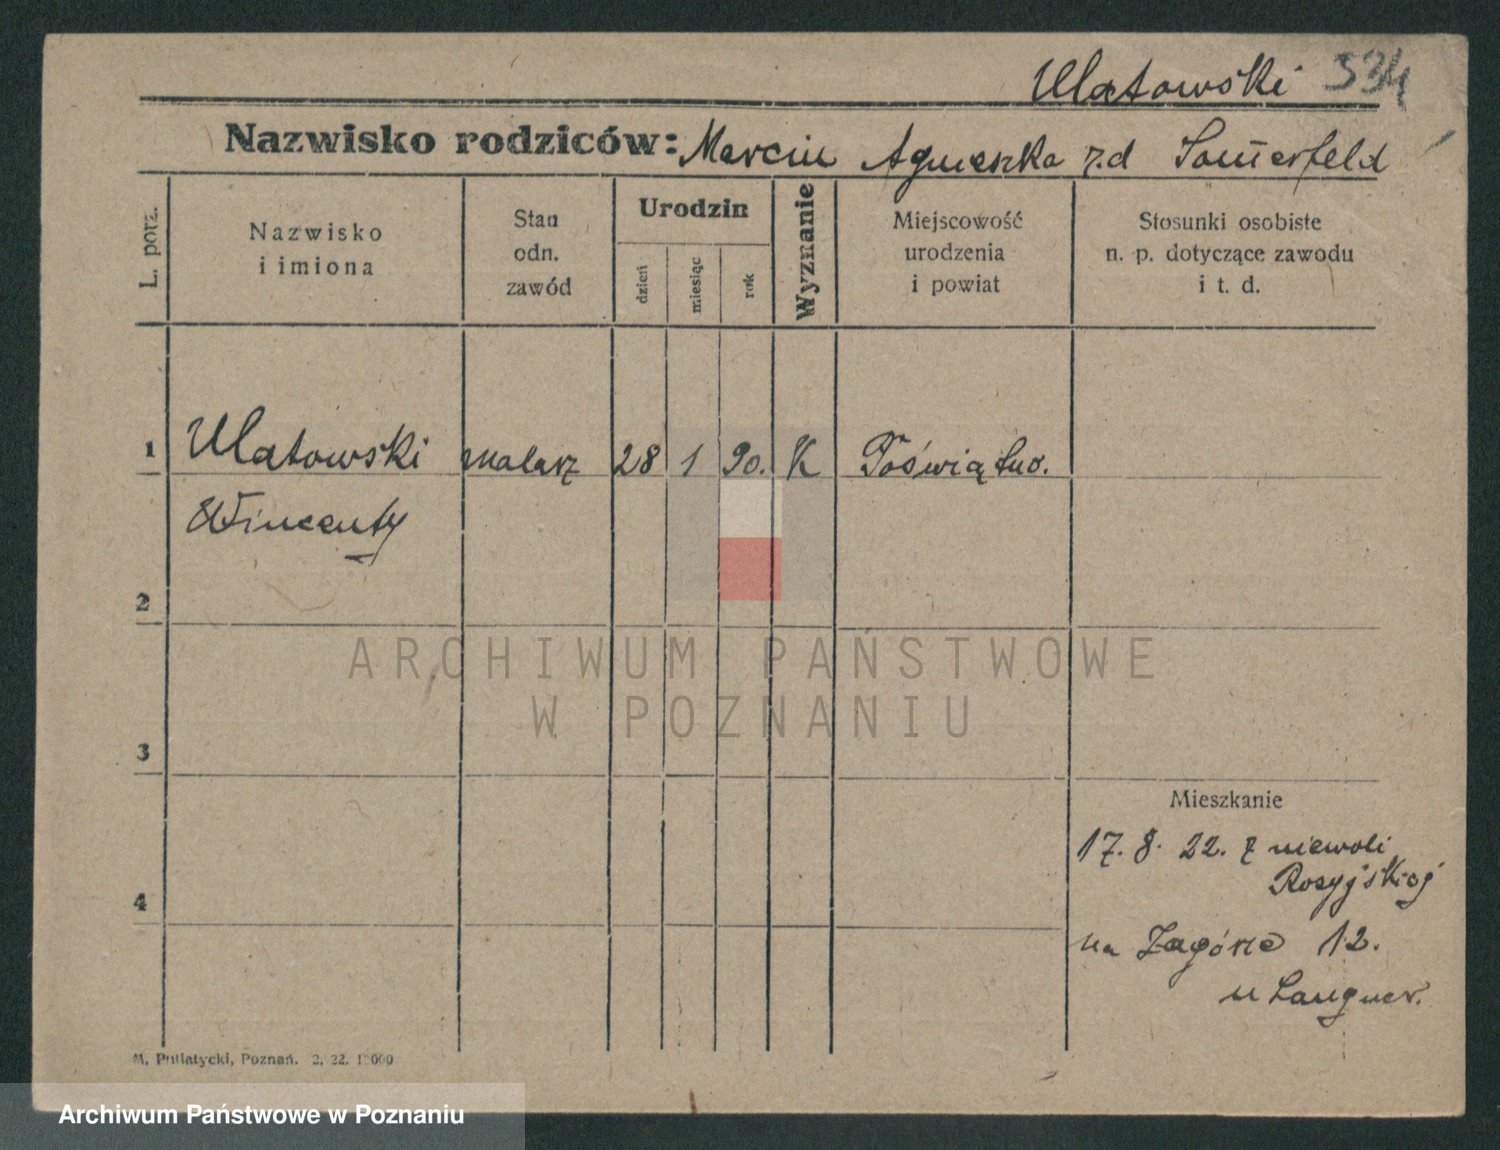 Ulatowski 534
Nazwisko rodziców: Marcin Agnieszka z.d Somerfeld
L. porz.
Nazwisko
i imiona
Stan
odn.
zawód
Urodzin
dzień
miesiąc
rok
Wyznanie
Miejscowość
urodzenia
i powiat
Stosunki osobiste
n. p. dotyczące zawodu
i t. d.
1 Ulatowski malarz 28 1 90. K Pośwıątno.
Wincenty
2
ARCHIWUM PAŃSTWOWE
W POZNANIU
3
Mieszkanie
17. 8. 22. z niewoli
Rosyjskiej
4
na Zagórze 12.
u Langner.
M. Putiatycki, Poznań. 2, 22.
Archiwum Państwowe w Poznaniu